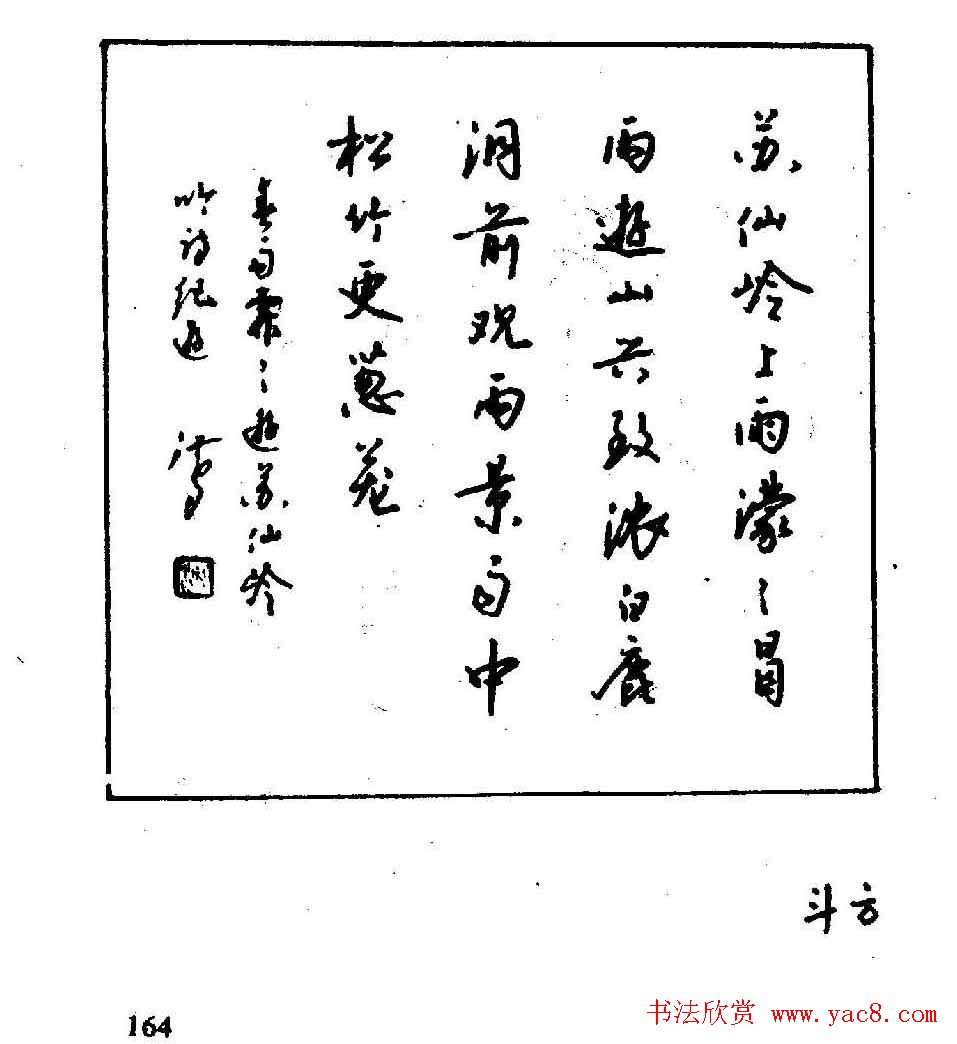 苏仙岭上雨濛〻冒
雨遊山兴致浓白鹿
洞前观雨景雨中
松竹更葱茏
春雨霏〻遊苏仙岭
吟诗纪遊
斗方
164
书法欣赏 www.yac8.com